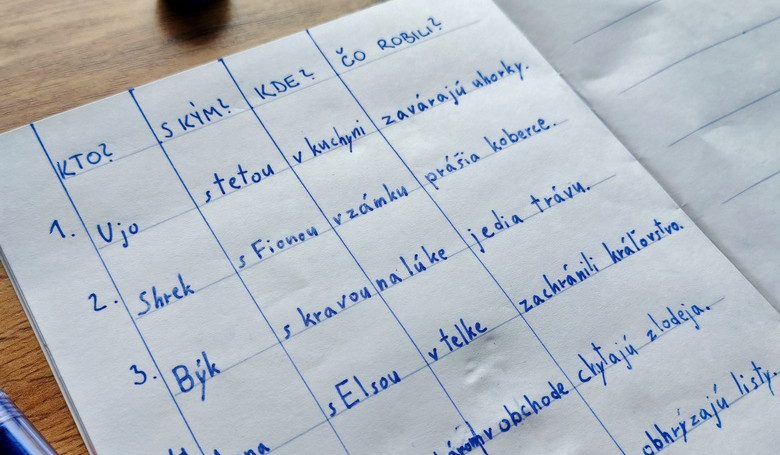 KTO? S KÝM? KDE? ČO ROBILI?
1. Ujo s tetou v kuchyni zavárajú uhorky.
2. Shrek s Fionou v zámku prášia koberce.
3. Býk s kravou na lúke jedia trávu.
s Elsou v telke zachránili kráľovstvo.
v obchode chytajú zlodeja.
obhrýzajú listy.